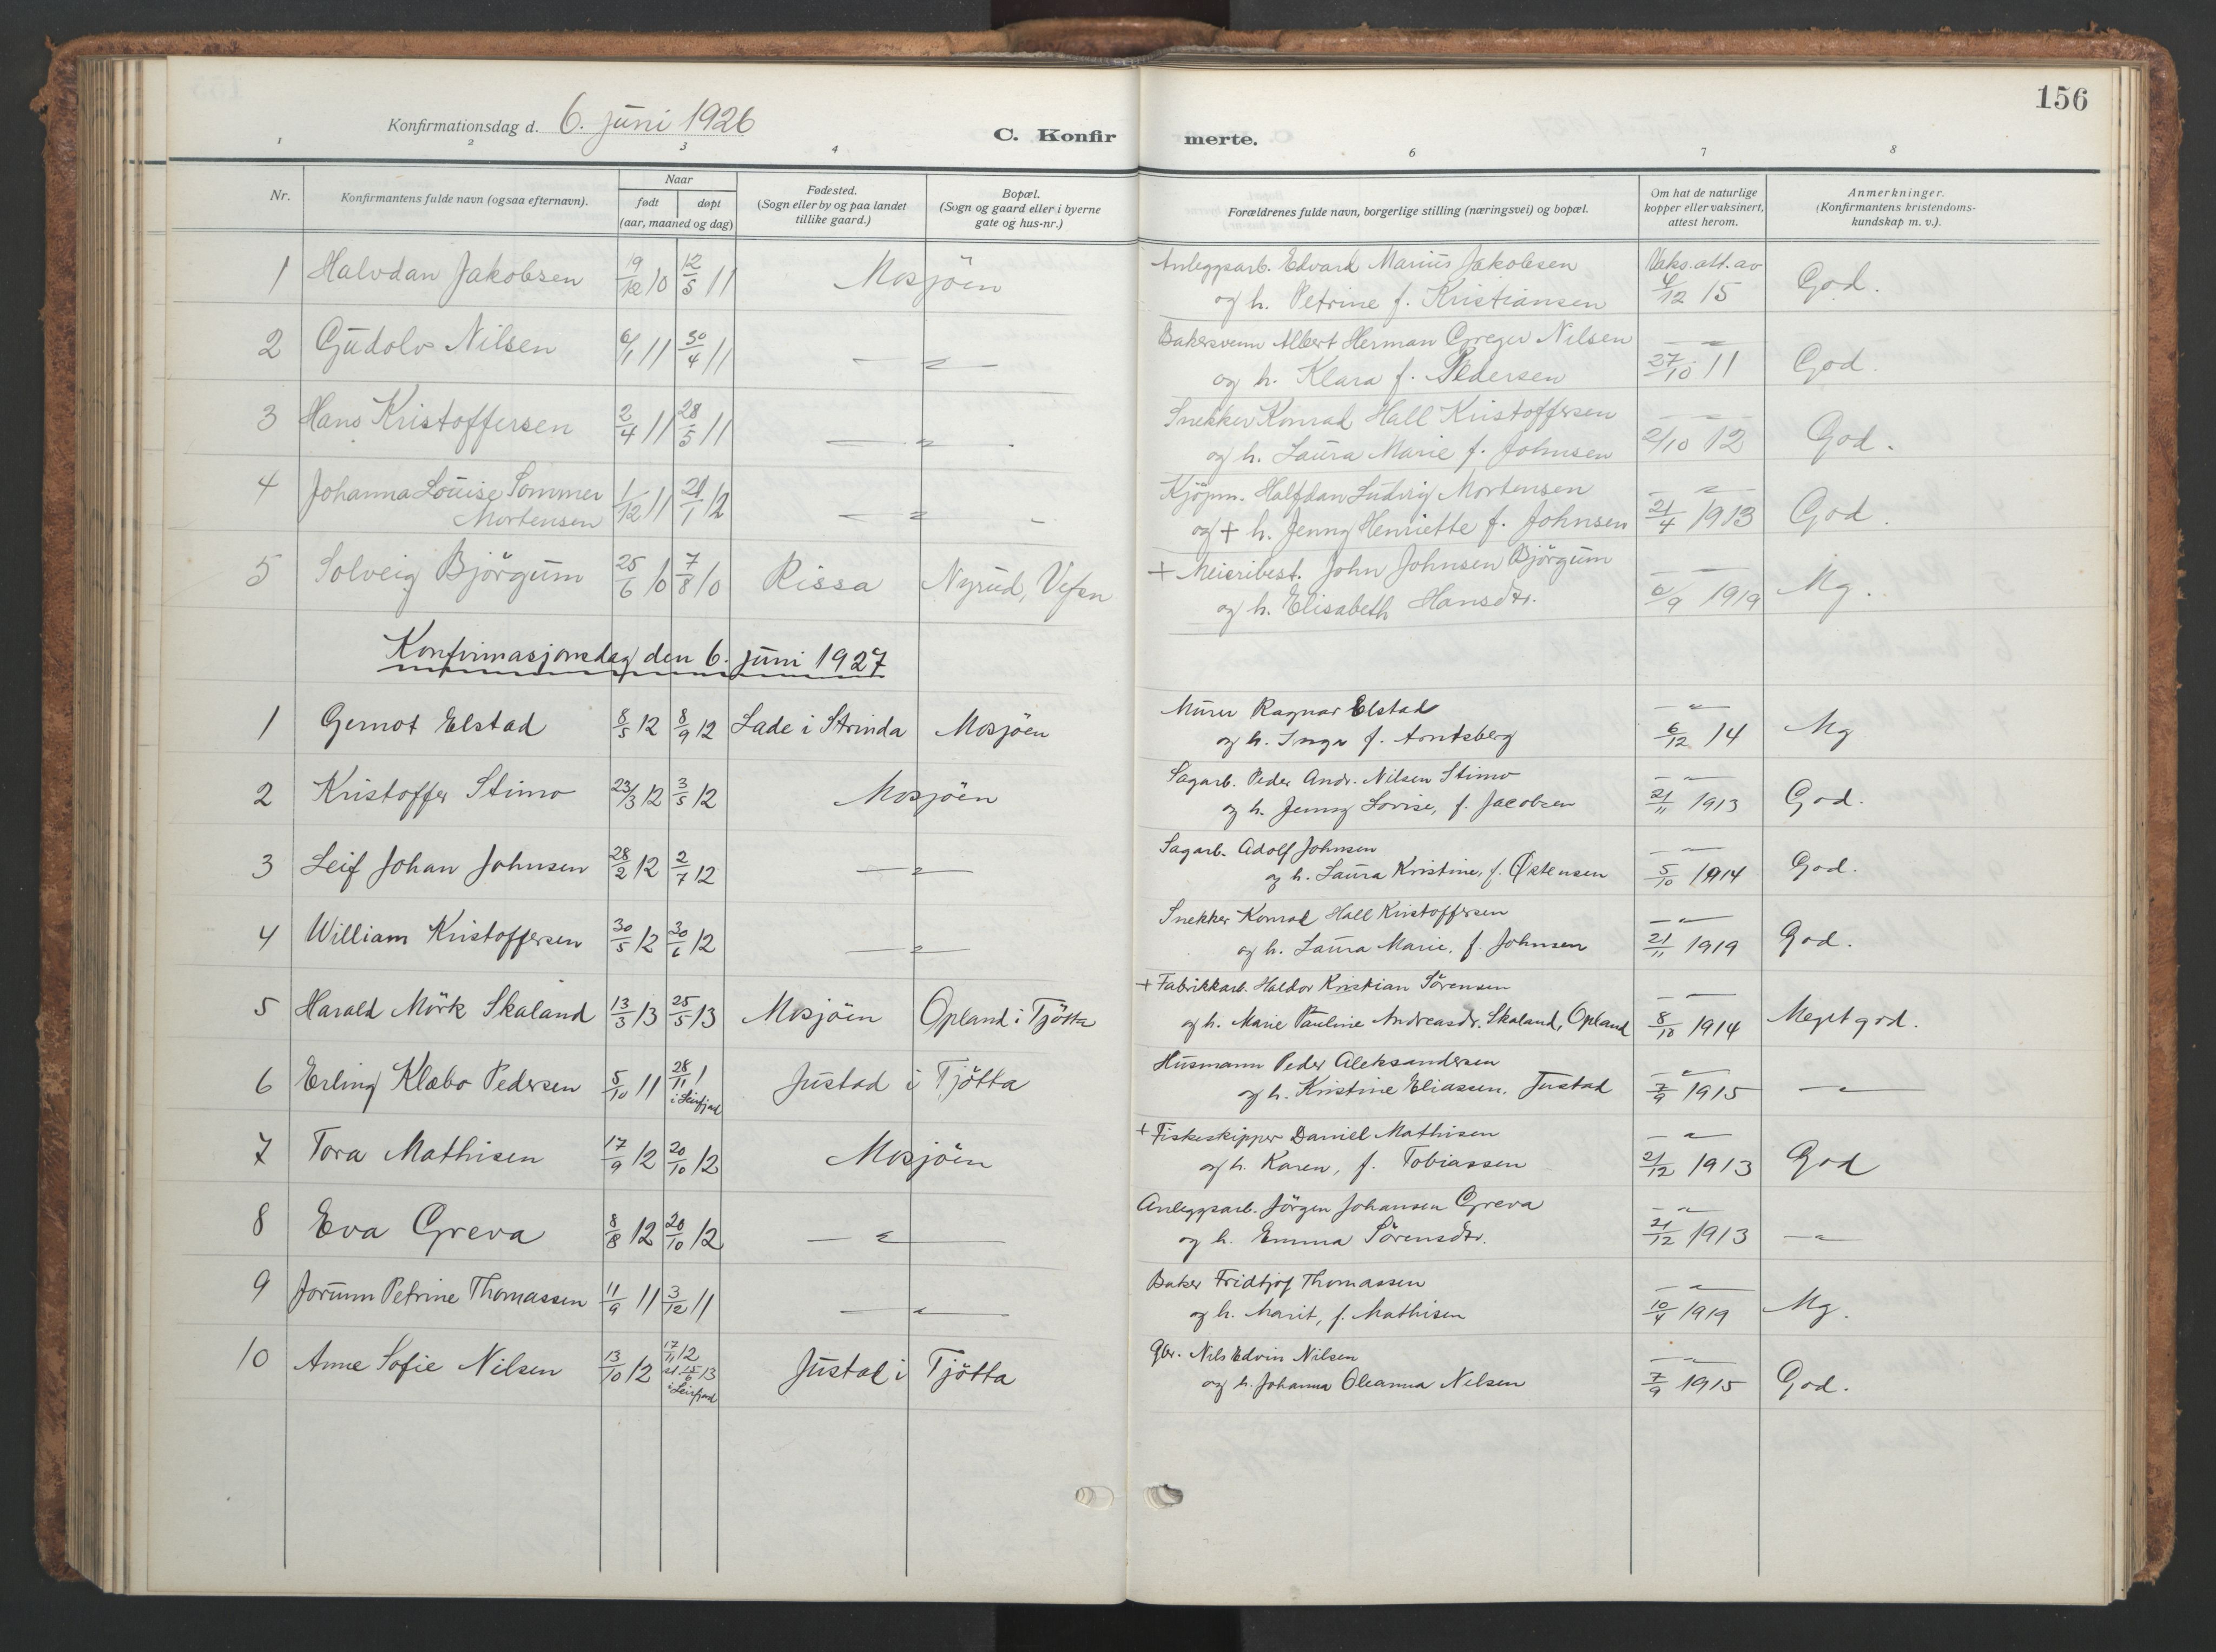 156
Konfirmationsdag d. 6. juni 1926
C. Konfir merte.
1 2 3 4 6 7 8
Nr.
Konfirmantens fulde navn (ogsaa efternavn).
Naar
født døpt
(aar, maaned og dag)
Fødested.
(Sogn eller by og paa landet
tillike gaard.)
Bopæl.
(Sogn og gaard eller i byerne
gate og hus-nr.)
Forældrenes fulde navn, borgerlige stilling (næringsvei) og bopæl.
Om hat de naturlige
kopper eller vaksinert,
attest herom.
Anmerkninger.
(Konfirmantens kristendoms-
kundskap m. v.).
1 Halvdan Jakobsen 19/12 10 12/5 11 Mosjöen Anleggsarb. Edvard Marius Jakobsen Vaks. att. av God.
og h. Petrine f. Kristiansen 4/12 15
2 Gudolv Nilsen 6/1 11 30/4 11 — " — Bakersvenn Albert Herman Greger Nilsen — " — God.
og h. Klara f. Pedersen 27/10 11
3 Hans Kristoffersen 2/4 11 28/5 11 — " — Snekker Konrad Hall Kristoffersen — " — God.
og h. Laura Marie f. Johnsen 2/10 12
4 Johanna Louise Sommer 1/12 11 21/1 12 — " — Kjöpm. Halfdan Ludvig Mortensen — " — God.
Mortensen og + h. Jenny Henriette f. Johnsen 21/4 1913
5 Solveig Björgum 25/6 10 7/8 10 Rissa Nyrud, Vefsn + Meieribest. John Johnsen Björgum — " — Mg.
og h. Elisabeth Hansdtr. 6/9 1919
Konfirmasjonsdag den 6. juni 1927
1 Gernot Elstad 8/5 12 8/9 12 Lade i Strinda Mosjöen Murer Ragnar Elstad — " — Mg
og h. Inga f. Arntsberg 6/12 14
2 Kristoffer Stimo 23/3 12 3/5 12 Mosjöen Sagarb. Peder Andr. Nilsen Stimo — " — God.
og h. Jenny Lovise, f. Jacobsen 21/11 1913
3 Leif Johan Johnsen 28/2 12 2/7 12 — " — Sagarb. Adolf Johnsen — " — God.
og h. Laura Kristine, f. Østensen 5/10 1914
4 William Kristoffersen 30/5 12 30/6 12 — " — Snekker Konrad Hall Kristoffersen — " — God.
og h. Laura Marie, f. Johnsen 21/11 1919
5 Harald Mörk Skaland 13/3 13 25/5 13 Mosjöen Opland i Tjötta + Fabrikkarb. Haldor Kristian Sörensen — " — Meget god.
og h. Marie Pauline Andreasdr. Skaland, Opland 8/10 1914
6 Erling Klæbo Pedersen 5/10 11 28/11 1 Justad i Tjötta Husmann Peder Aleksandersen — " — — " —
i Leirfjord og h. Kristine Eliassen. Justad 7/9 1915
7 Tora Mathisen 17/9 12 20/10 12 Mosjöen + Fiskeskipper Daniel Mathisen — " — God
og h. Karen, f. Tobiassen 21/12 1913
8 Eva Greva 8/8 12 20/10 12 — " — Anleggsarb. Jörgen Johansen Greva — " — — " —
og h. Emma Sörensdtr. 21/12 1913
9 Jorunn Petrine Thomassen 11/9 11 3/12 11 — " — Baker Fridtjof Thomassen — " — Mg.
og h. Marit, f. Mathisen 10/4 1919
10 Anne Sofie Nilsen 13/10 12 17/11 12 Justad i Tjötta Gbr. Nils Edvin Nilsen — " — God.
st. 15/6 13 i Leirfjord og h. Johanna Oleanna Nilsen 7/9 1915